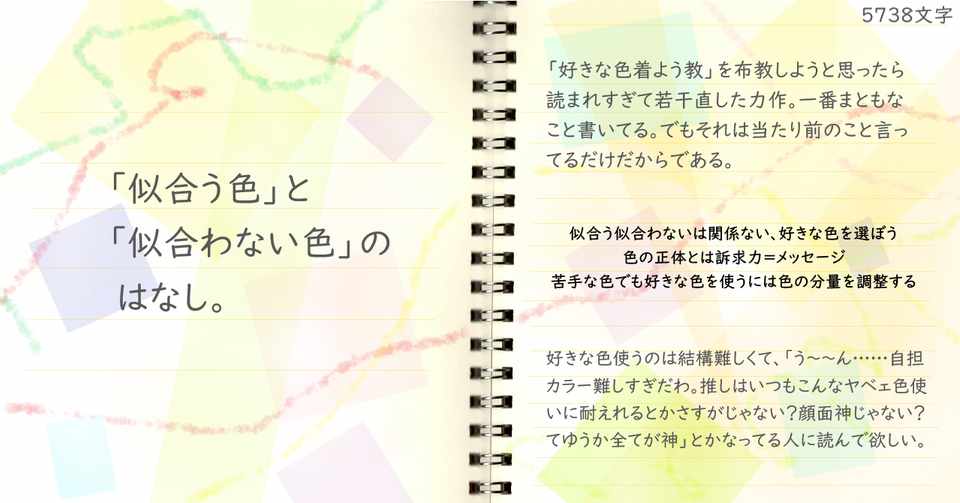 5738文字
「似合う色」と
「似合わない色」の
はなし。
「好きな色着よう教」を布教しようと思ったら
読まれすぎて若干直した力作。一番まともな
こと書いてる。でもそれは当たり前のこと言っ
てるだけだからである。
似合う似合わないは関係ない、好きな色を選ぼう
色の正体とは訴求力=メッセージ
苦手な色でも好きな色を使うには色の分量を調整する
好きな色使うのは結構難しくて、「う〜〜ん……自担
カラー難しすぎだわ。推しはいつもこんなヤベェ色使
いに耐えれるとかさすがじゃない?顔面神じゃない?
てゆうか全てが神」とかなってる人に読んで欲しい。